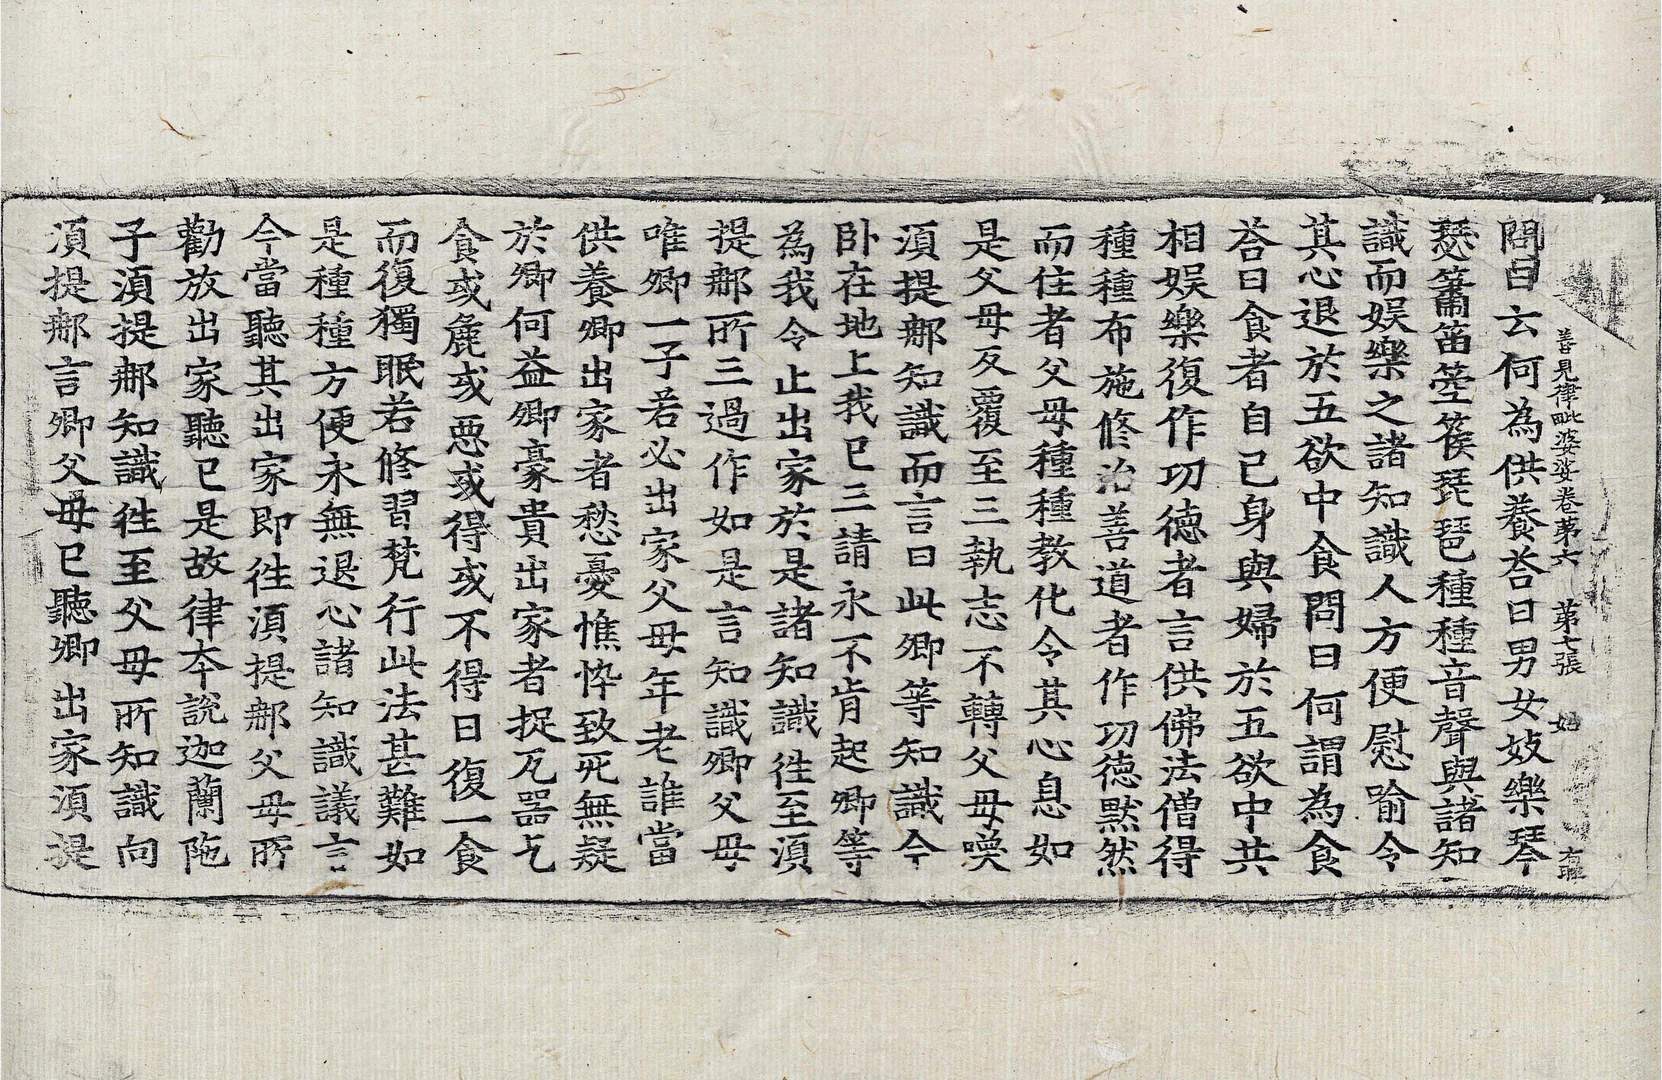 善見律毗婆娑卷第六 第七張 㚶
問曰云何為供養荅曰男女妓樂琴
瑟簫笛箜篌琵琶種種音聲與諸知
識而娛樂之諸知識人方便慰喻令
其心退於五欲中食問曰何謂為食
荅曰食者自己身與婦於五欲中共
相娛樂復作功德者言供佛法僧得
種種布施修治善道者作功德黙然
而住者父母種種教化令其心息如
是父母反覆至三執志不轉父母喚
湏提郍知識而言曰此卿等知識今
卧在地上我已三請永不肯起卿等
為我令止出家於是諸知識徃至湏
提郍所三過作如是言知識卿父母
唯卿一子若必出家父母年老誰當
供養卿出家者愁憂憔悴致死無疑
於卿何益卿豪貴出家者捉瓦器乞
食或麁或惡或得或不得日復一食
而復獨眠若修習梵行此法甚難如
是種種方便永無退心諸知識議言
今當聽其出家即徃湏提郍父母所
勸放出家聽已是故律本說迦蘭陁
子湏提郍知識徃至父母所知識向
湏提郍言卿父母已聽卿出家湏提